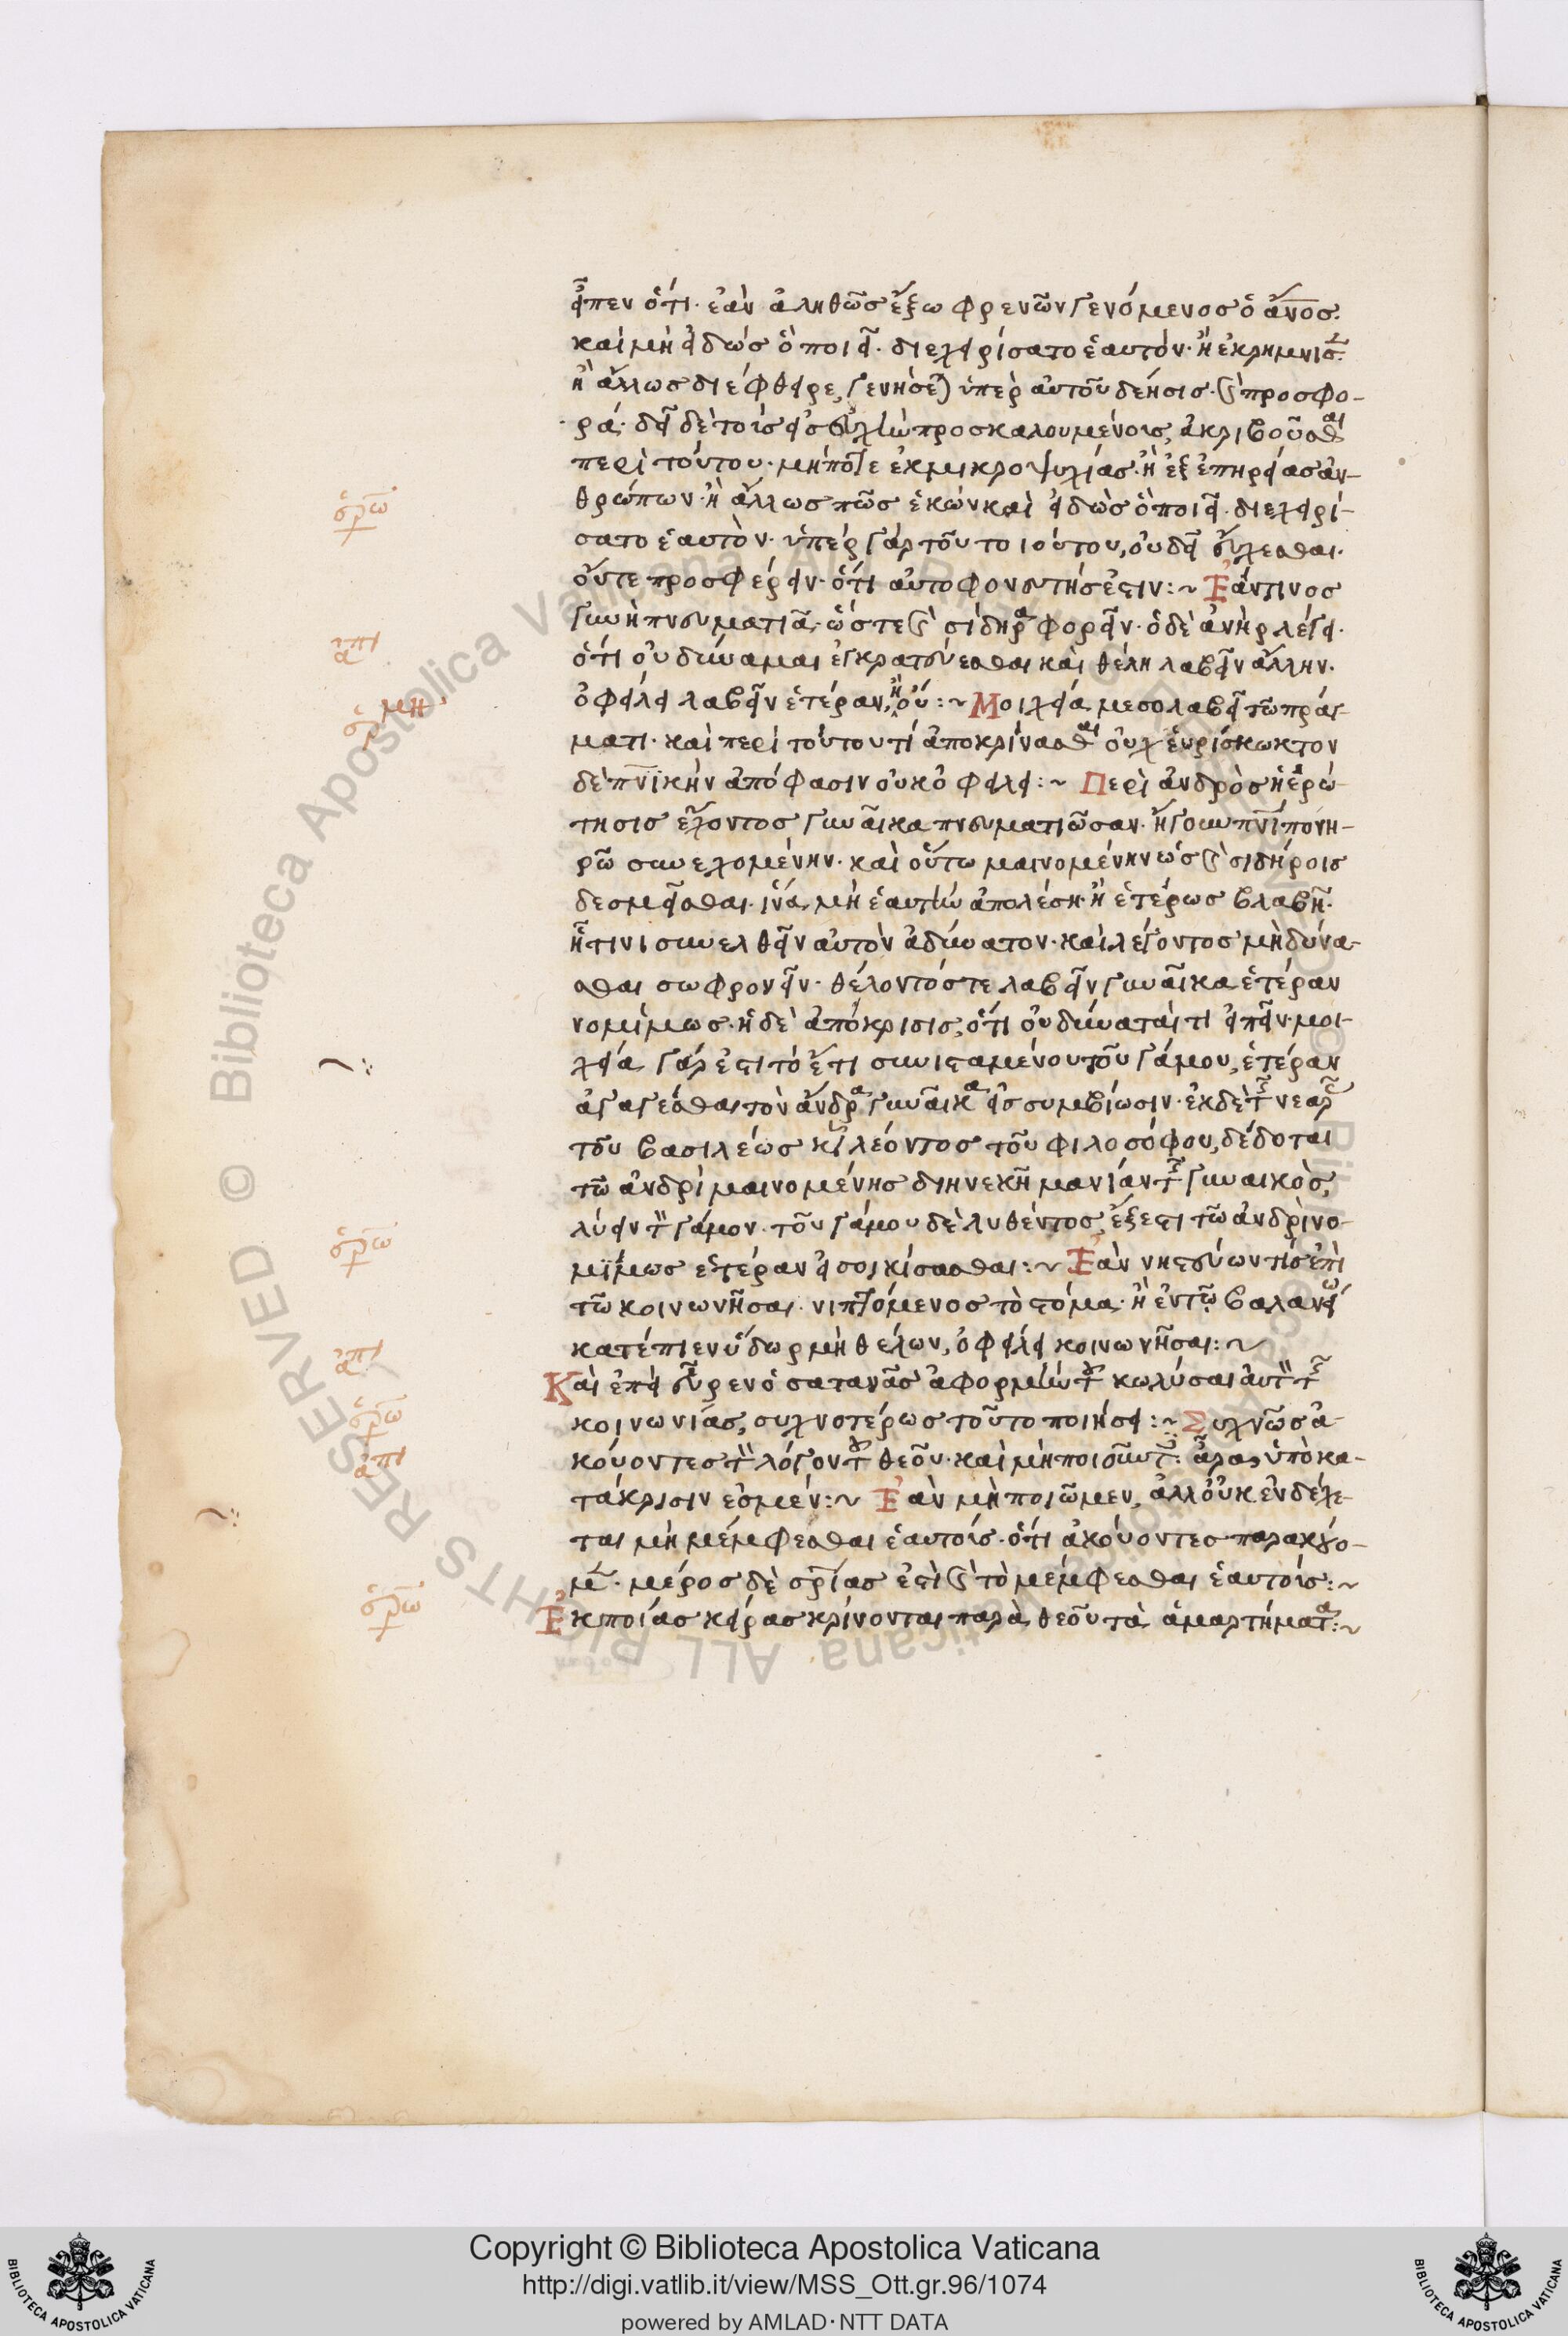 εἶπεν ὅτι· ἐὰν ἀληθῶς ἔξω φρενῶν γενόμενος ὁ ἄνος·
καὶ μὴ εἰδὼς ὃ ποιεῖ· διεχειρίσατο ἑαυτόν· ἢ ἐκρημνίσ
ἢ ἄλλως διέφθειρε, γενήσε ὑπὲρ αὐτοῦ δέησις· καὶ προσφο-
ρά· δεῖ δὲ τοῖς εἰς εὐχὴν προσκαλουμένοις, ἀκριβοῦσθαι
περὶ τούτου· μήποτε ἐκ μικροψυχίας· ἢ ἐξ ἐπηρείας ἀν-
θρώπων· ἢ ἄλλως πῶς ἑκὼν καὶ εἰδὼς ὃ ποιεῖ· διεχειρί-
σατο ἑαυτὸν· ὑπὲρ γὰρ τοῦ τοιούτου, οὐ δεῖ εὔχεσθαι·
οὔτε προσφέρειν· ὅτι αὐτοφονευτής ἐστιν:~ Ἐάν τινος
γυνὴ πνευματιᾶ· ὥστε καὶ σίδηρα φορεῖν· ὁ δὲ ἀνὴρ λέγει·
ὅτι οὐ δύναμαι ἐγκρατεύεσθαι καὶ θέλη λαβεῖν ἄλλην·
ὀφείλει λαβεῖν ἑτέραν, ἢ οὔ:~ Μοιχεία μεσολαβεῖ τῶ πράγ-
ματι· καὶ περὶ τούτου τί ἀποκρίνασθαι οὐχ εὑρίσκω κτον
δὲ πνικὴν ἀπόφασιν οὐκ ὀφείλει:~ Περὶ ἀνδρὸς ἡ ἐρώ-
τησις ἔχοντος γυναῖκα πνευματιῶσαν· ἤγουν πνι πονη-
ρῶ συνεχομένην· καὶ οὕτω μαινομένην ὡς καὶ σιδήροις
δεσμεῖσθαι· ἵνα μὴ ἑαυτὴν ἀπολέση· ἢ ἑτέρως βλαβῆ·
ἧτινι συνελθεῖν αὐτὸν ἀδύνατον· καὶ λέγοντος μὴ δύνα-
σθαι σωφρονεῖν· θέλοντός τε λαβεῖν γυναῖκα ἑτέραν
νομίμως· ἡ δὲ ἀπόκρισις, ὅτι οὐ δύναταί τι εἰπεῖν· μοι-
χεία γάρ ἐστι τὸ ἔτι συνισταμένου τοῦ γάμου, ἑτέραν
ἀγαγέσθαι τὸν ἄνδρα γυναῖκα εἰς συμβίωσιν· ἐκ δὲ τῆς νεαρᾶς
τοῦ βασιλέως κυρ λέοντος τοῦ φιλοσόφου, δέδοται
τῶ ἀνδρὶ μαινομένης διηνεκῆ μανίαν τῆς γυναικὸς,
λύειν τὸν γάμον· τοῦ γάμου δὲ λυθέντος, ἔξεστι τῶ ἀνδρὶ νο-
μίμως ἑτέραν εἰσοικίσασθαι:~ Ἐὰν νηστεύων τίς ἐπὶ
τῶ κοινωνῆσαι· νιπτόμενος τὸ στόμα· ἢ ἐν τῶ βαλανείω
κατέπιεν ὕδωρ μὴ θέλων, ὀφείλει κοινωνῆσαι:~
Καὶ ἐπεὶ εὗρεν ὁ σατανᾶς ἀφορμὴν τοῦ κωλύσαι αὐτὸν τῆς
κοινωνίας, συχνοτέρως τοῦτο ποιήσει:~ Συχνῶς ἀ-
κούοντες τὸν λόγον τοῦ θεοῦ· καὶ μὴ ποιοῦντες· ἆρα ὑπὸ κα-
τάκρισιν ἐσμέν:~ Ἐὰν μὴ ποιῶμεν, ἀλλ οὐκ ἐνδέχε-
ται μὴ μέμφεσθαι ἑαυτοῖς· ὅτι ἀκούοντες παρακούο-
μεν· μέρος δὲ σρίας ἐστὶ καὶ τὸ μέμφεσθαι ἑαυτοῖς:~
Ἐκ ποίας χείρας κρίνονται παρὰ θεοῦ τὰ ἁμαρτήματα:~
ἐρω
ἀπι
ἐρμη
ἐρω
ἀπι
ἐρω
ἀπι
ἐρω
© Biblioteca Apostolica Vaticana ALL RIGHTS RESERVED
Copyright © Biblioteca Apostolica Vaticana
http://digi.vatlib.it/view/MSS_Ott.gr.96/1074
powered by AMLAD·NTT DATA
BIBLIOTECA APOSTOLICA VATICANA
BIBLIOTECA APOSTOLICA VATICANA